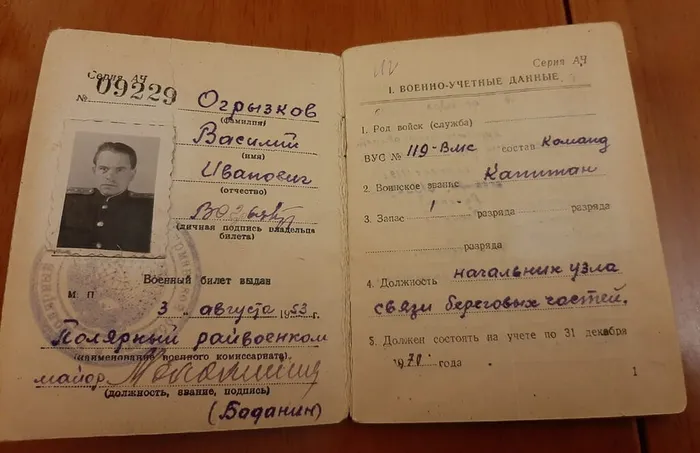 Серия АЧ
№ 09229
Огрызков
(фамилия)
Василий
(имя)
Иванович
(отчество)
(личная подпись владельца
билета)
Военный билет выдан
М П
3 „ августа 1953 г.
Полярный райвоенком
(наименование военного комиссариата)
майор
(должность, звание, подпись)
(Баданин)
Серия АЧ
I. ВОЕННО-УЧЕТНЫЕ ДАННЫЕ
1. Род войск (служба)
ВУС № 119-Вмс состав Команд
2. Воинское звание Капитан
3. Запас 1 разряда разряда
разряда
4. Должность начальник узла
связи береговых частей.
5. Должен состоять на учете по 31 декабря
1970 года
1